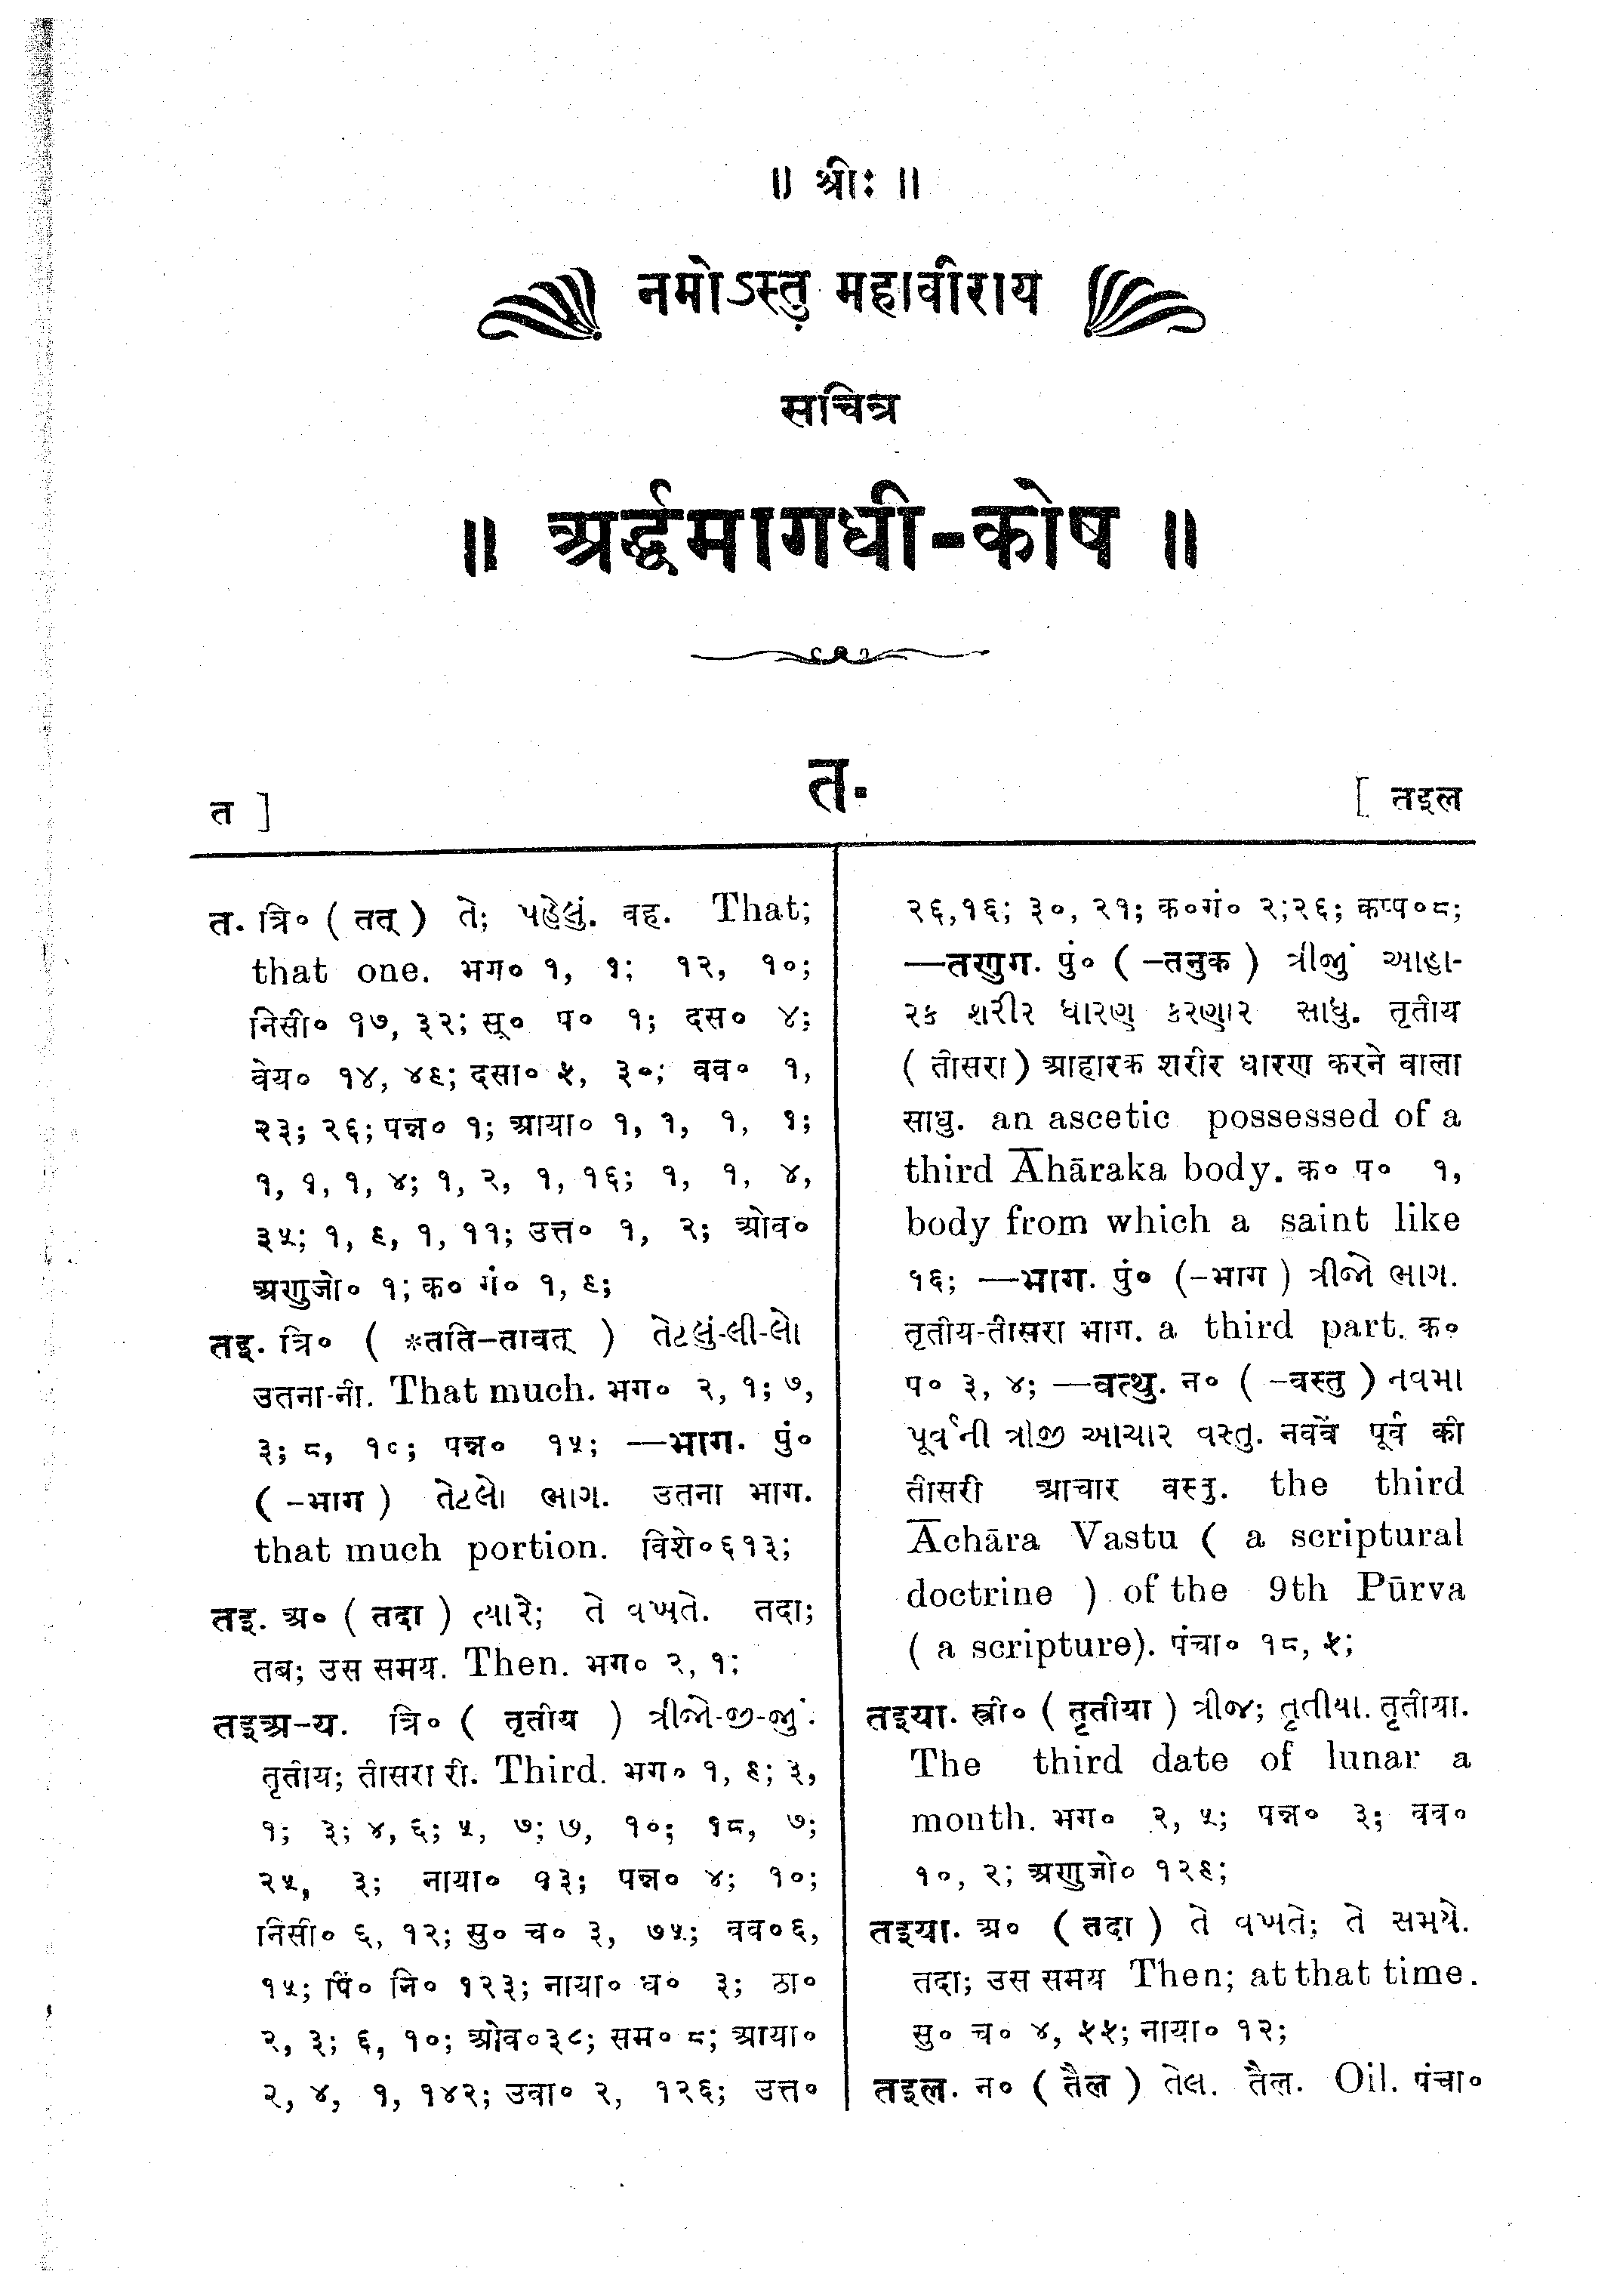 ॥ श्रीः ॥
नमोऽस्तु महावीराय
सचित्र
॥ अर्द्धमागधी-कोष ॥
त ]
त.
[ तइल
त. त्रि० ( तत् ) તે; પહેલું. वह. That;
that one. भग० १, १; १२, १०;
निसी० १७, ३२; सू० प० १; दस० ४;
वेय० १४, ४६; दसा० ५, ३०; वव० १,
२३; २६; पन्न० १; आया० १, १, १, १;
१, १, १, ४; १, २, १, १६; १, १, ४,
३५; १, ६, १, ११; उत्त० १, २; ओव०
अणुजो० १; क० गं० १, ६;
तइ. त्रि० ( *तति-तावत् ) તેટલું-લી-લો
उतना-नी. That much. भग० २, १; ७,
३; ८, १०; पन्न० १५; —भाग. पुं०
( -भाग ) તેટલો ભાગ. उतना भाग.
that much portion. विशे०६१३;
तइ. अ० ( तदा ) ત્યારે; તે વખતે. तदा;
तब; उस समय. Then. भग० २, १;
तइअ-य. त्रि० ( तृतीय ) ત્રીજો-જી-જું.
तृतीय; तीसरा री. Third. भग० १, ६; ३,
१; ३; ४, ६; ५, ७; ७, १०; १८, ७;
२५, ३; नाया० १३; पन्न० ४; १०;
निसी० ६, १२; सु० च० ३, ७५; वव०६,
१५; पिं० नि० १२३; नाया० ध० ३; ठा०
२, ३; ६, १०; ओव०३८; सम० ८; आया०
२, ४, १, १४२; उवा० २, १२६; उत्त०
२६,१६; ३०, २१; क०गं० २;२६; कप्प०८;
—तणुग. पुं० ( -तनुक ) ત્રીજું આહા-
રક શરીર ધારણ કરણાર સાધુ. तृतीय
( तीसरा ) आहारक शरीर धारण करने वाला
साधु. an ascetic possessed of a
third Āhāraka body. क० प० १,
body from which a saint like
१६; —भाग. पुं० (-भाग ) ત્રીજો ભાગ.
तृतीय-तीसरा भाग. a third part. क०
प० ३, ४; —वत्थु. न० ( -वस्तु ) નવમા
પૂર્વની ત્રીજી આચાર વસ્તુ. नववें पूर्व की
तीसरी आचार वस्तु. the third
Āchāra Vastu ( a scriptural
doctrine ) of the 9th Pūrva
( a scripture). पंचा० १८, ५;
तइया. स्त्री० ( तृतीया ) ત્રીજ; તૃતીયા. तृतीया.
The third date of lunar a
month. भग० २, ५; पन्न० ३; वव०
१०, २; अणुजो० १२६;
तइया. अ० ( तदा ) તે વખતે; તે સમયે.
तदा; उस समय Then; at that time.
सु० च० ४, ५५; नाया० १२;
तइल. न० ( तैल ) તેલ. तैल. Oil. पंचा०